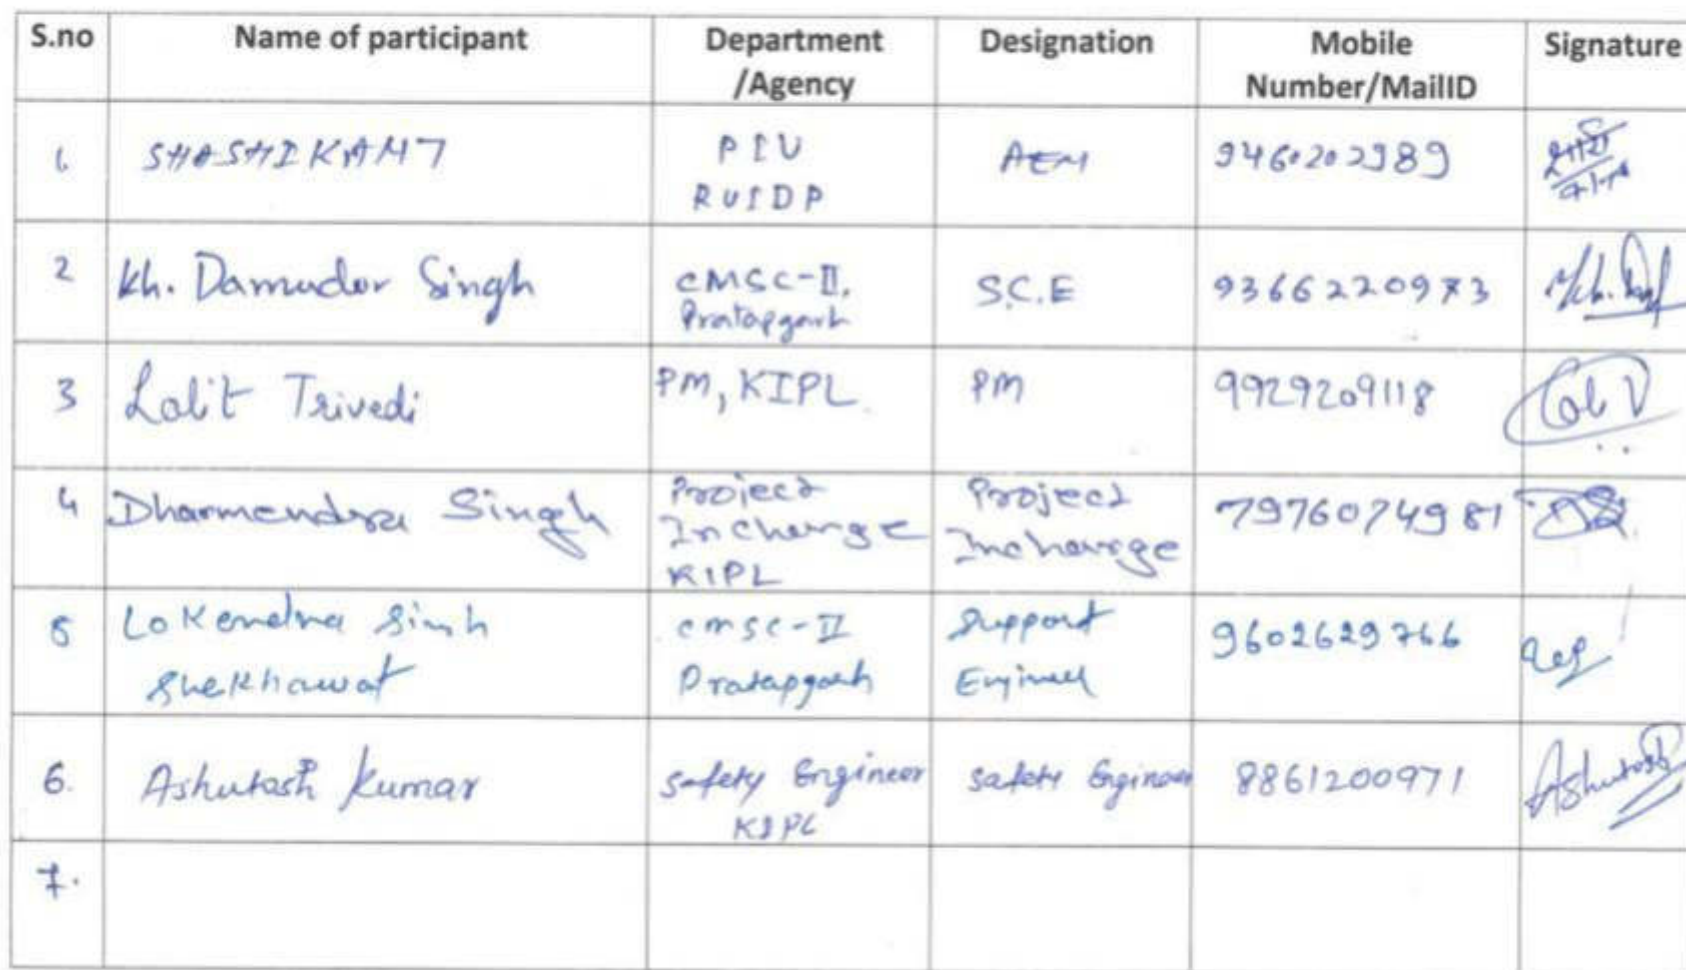 S.no Name of participant Department /Agency Designation Mobile Number/MailID Signature
1 SHASHIKANT PIU RUIDP AEM 9460202989
2 Kh. Damudor Singh CMSC-II, Pratapgarh S.C.E 9366220973
3 Lalit Trivedi PM, KIPL. PM 9929209118
4 Dharmendra Singh Project Incharge KIPL Project Incharge 7976074981
5 Lokendra Sinh Shekhawat CMSC-II Pratapgarh Support Engineer 9602629766
6. Ashutosh Kumar Safety Engineer KIPL Safety Engineer 8861200971 Ashutosh
7.